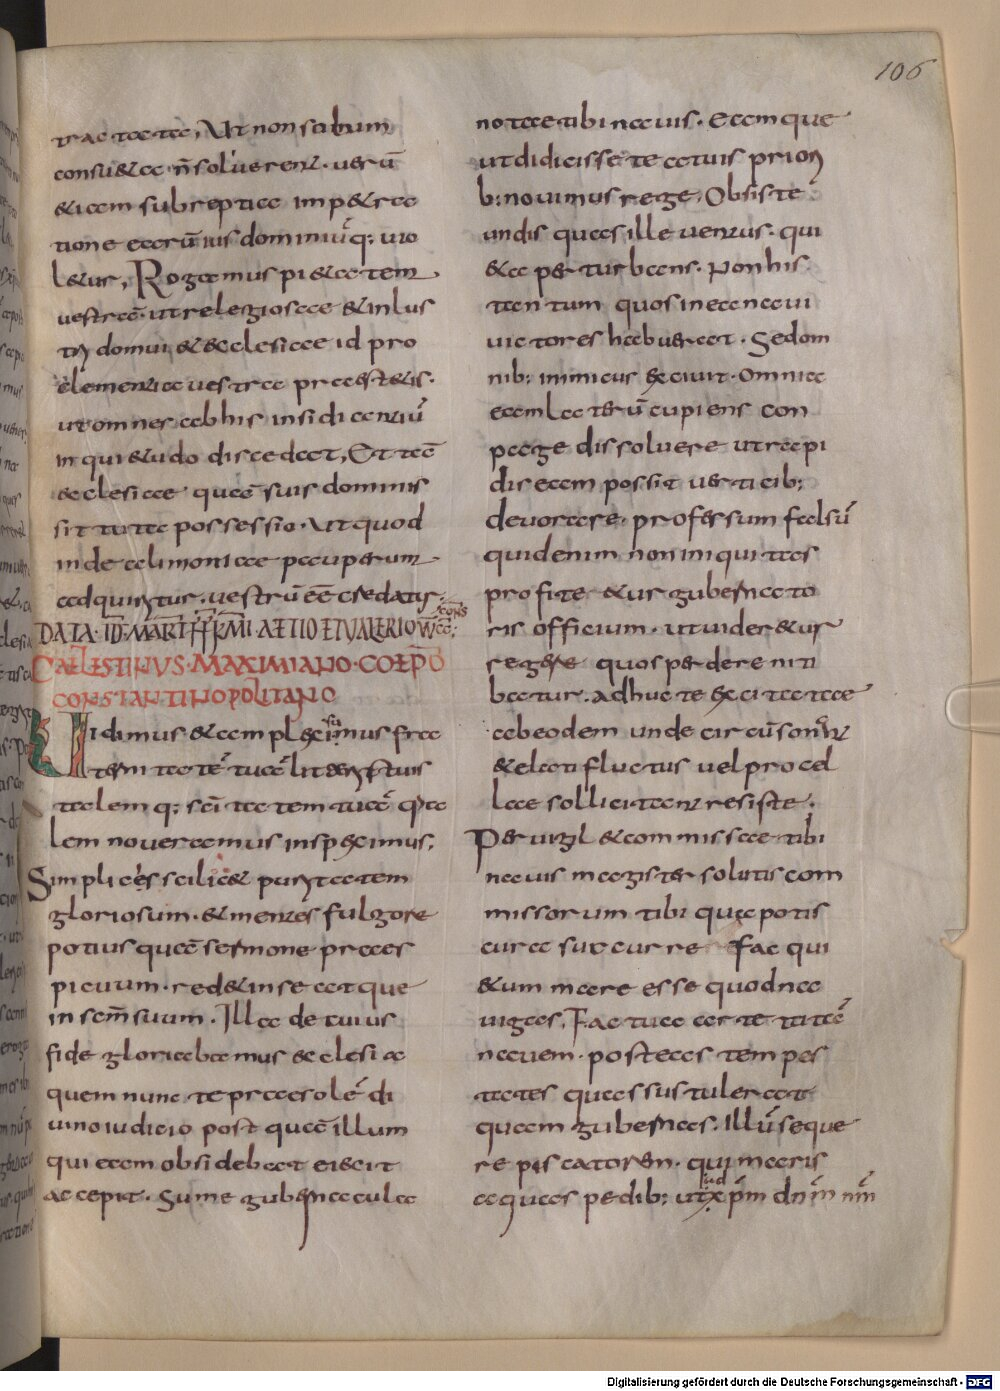 106
tractata, Ut non solum
consulta ñ soluerent. uerū
etiam subrepticia impetra
tione eorū ius dominiūq; uio
letur, Rogamus pietatem
uestrā. ut relegiosae & inlus
tri domui & ecclesiae id pro
clementia uestra praestetis.
ut omnes ab his insidiantiū
inquietudo discedat, Et tā
ecclesiae quā suis dominis
sit tuta possessio. Ut quod
inde alimoniae pauperum
adquiritur. uestrū ēē credatis.
DATA. ID. MART. AETIO ET VALERIO CONS
CAELESTINUS. MAXIMIANO. COEPO
CONSTANTINOPOLITANO
Uidimus & amplexi sumus fra
ternitatē tuā litteris tuis
talemq; sci tatem tuā qua
lem noueramus inspeximus;
Simplices scilicet puritatem
gloriosum. & mentes fulgore
potius quā sermone praes
picuum. redet in se atque
in scm̄ suum. Illa de cuius
fide gloriabamus ecclesia
quem nunc te praesolē di
uino iudicio post quā illum
qui eam obsidebat eiecit
accepit. Sume gubernacula
notae tibi nauis. eamque
ut didicisse te a tuis priori
b; nouimus rege, Obsiste
undis quas ille uentus. qui
& a perturbans. Non his
tantum quos in ea naui
uictores habuerat. Sed om
nib; inimicus exciuit. Omnia
eam laterū cupiens con
page dissoluere ut rapi
dis eam possit uerticib;
deuorare. professum falsū
quidem in non iniquitas
profite &ur gubernato
ris officium. ut uideretur
regere quos perdere niti
batur. adhuc te excitatae
ab eodem unde circūsonant
& elati fluctus uel procel
lae sollicitant resiste.
Peruigil & commissae tibi
nauis magister solutis com
missorum tibi qua potis
cura succurre Fac qui
&um mare esse quod na
uigas, Fac tua certe tutā
nauem. post eas tempes
tates quas sustulerat
quam gubernas. Illū seque
re piscatorem. qui maris
aquas pedib; ut iud x p̄m dn̄m nm̄
Digitalisierung gefördert durch die Deutsche Forschungsgemeinschaft - DFG